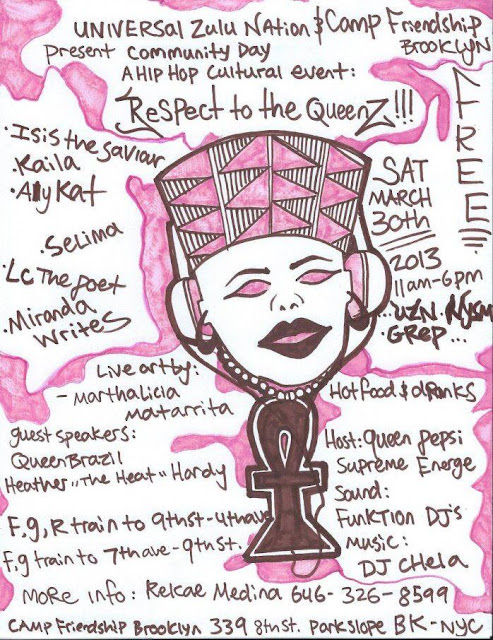 UNIVERSAL Zulu NATION & Camp Friendship
BROOKLYN
present community DAY
A HIP HOP Cultural event:
Respect to the QueenZ!!!
FREE
·Isis the saviour
·Kaila
·AlyKat
·Selima
·Lc The poet
·Miranda
writes
SAT
MARCH
30th
2013
11am-6pm
...UZN·NYSM
GREP...
Live art by:
- Marthalicia
Matarrita
Hot food & drinks
guest speakers:
Queen Brazil
Heather "The Heat" Hardy
Host: Queen Pepsi
Supreme Energe
Sound:
FunKTION DJ's
Music:
DJ CHELA
F,g,R train to 9thst-4thave
F,g train to 7thave-9thst.
More info: Relcae Medina 646-326-8599
CAMP Friendship Brooklyn 339 8thst. Parkslope BK-NYC